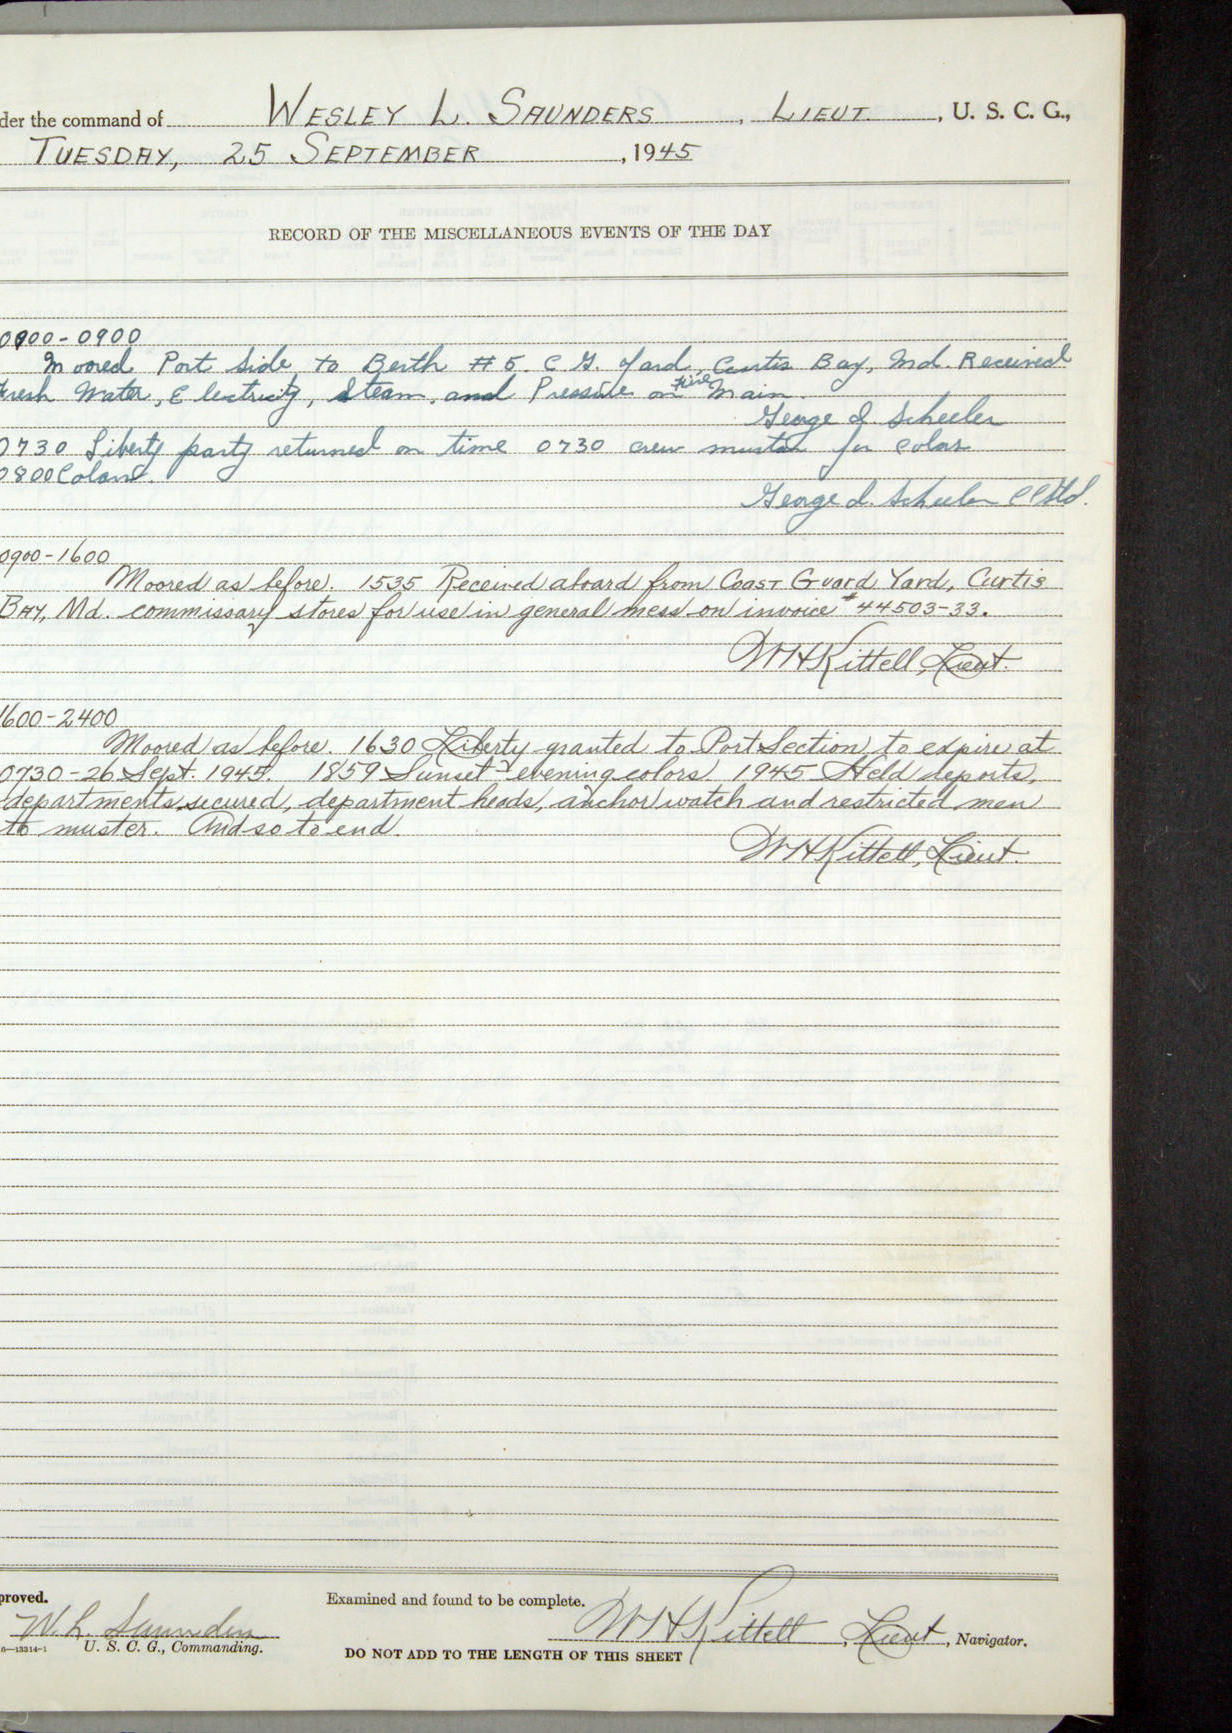 der the command of WESLEY L. SAUNDERS, LIEUT., U. S. C. G.,
TUESDAY, 25 SEPTEMBER, 1945
RECORD OF THE MISCELLANEOUS EVENTS OF THE DAY
0000-0900
Moored Port Side to Berth #5. C G. Yard, Curtis Bay, Md. Received
Fresh Water, Electricity, Steam, and Pressure on Fire Main.
George J. Scheeler
0730 Liberty party returned on time 0730 crew muster for colors
0800 Colors.
George J. Scheeler
0900-1600
Moored as before. 1535 Received aboard from COAST GUARD YARD, Curtis
BAY, Md. commissary stores for use in general mess on invoice #44503-33.
WHKittell, Lieut.
1600-2400
Moored as before. 1630 Liberty granted to Port Section, to expire at
0730-26 Sept. 1945. 1859 Sunset - evening colors 1945 Held reports,
departments secured, department heads, anchor watch and restricted men
to muster. And so to end.
WHKittell, Lieut.
proved.
Examined and found to be complete.
W. L. Saunders
WHKittell, Lieut, Navigator.
6—13314-1 U. S. C. G., Commanding.
DO NOT ADD TO THE LENGTH OF THIS SHEET